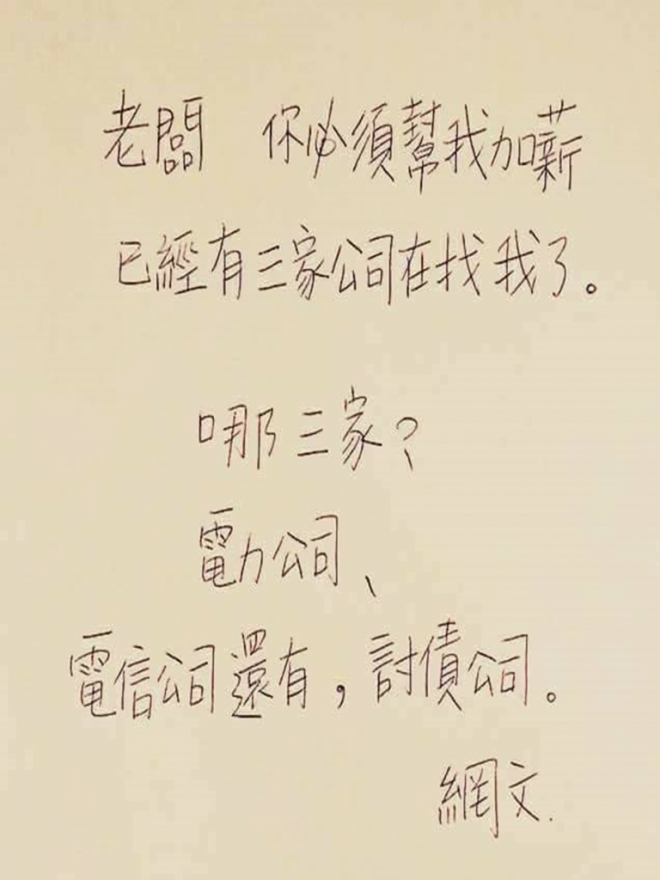 老闆 你必須幫我加薪
已經有三家公司在找我了。
哪三家?
電力公司、
電信公司還有,討債公司。
網文.